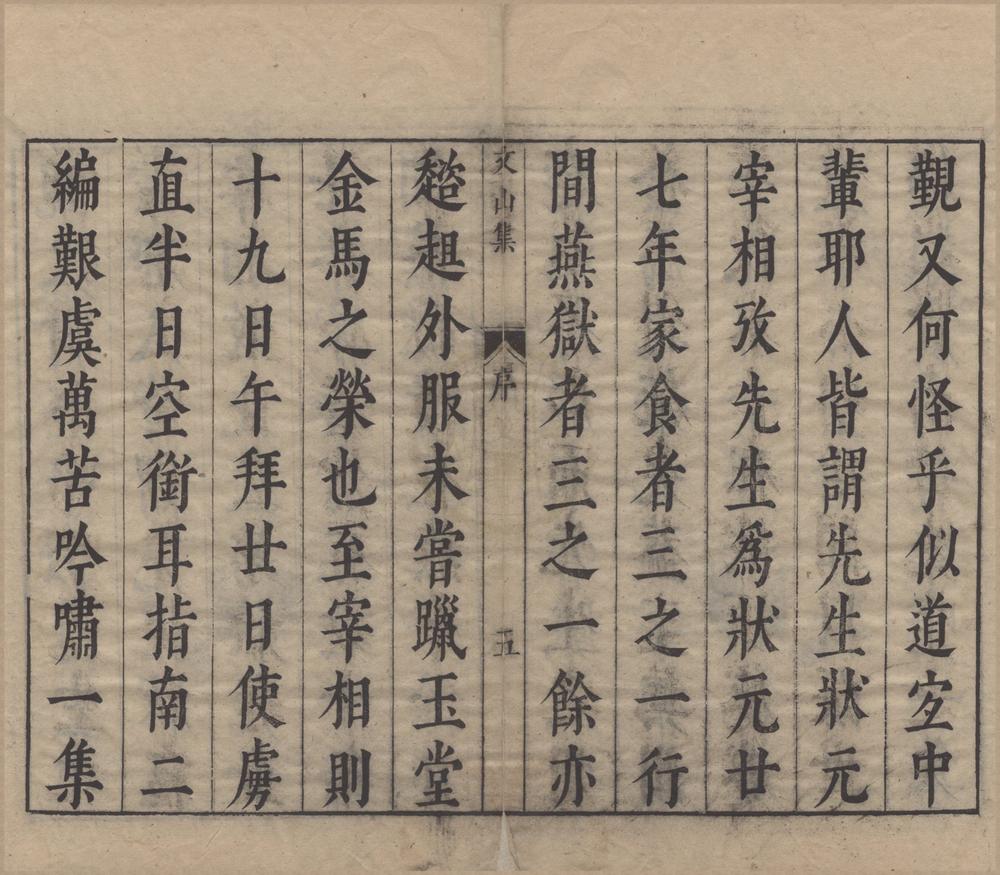 覲又何怪乎似道㝎中
輩耶人皆謂先生狀元
宰相攷先生爲狀元廿
七年家食者三之一行
間燕獄者三之一餘亦
文山集 序 五
趦趄外服未嘗躐玉堂
金馬之榮也至宰相則
十九日午拜廿日使虜
直半日空銜耳指南二
編艱虞萬苦吟嘯一集